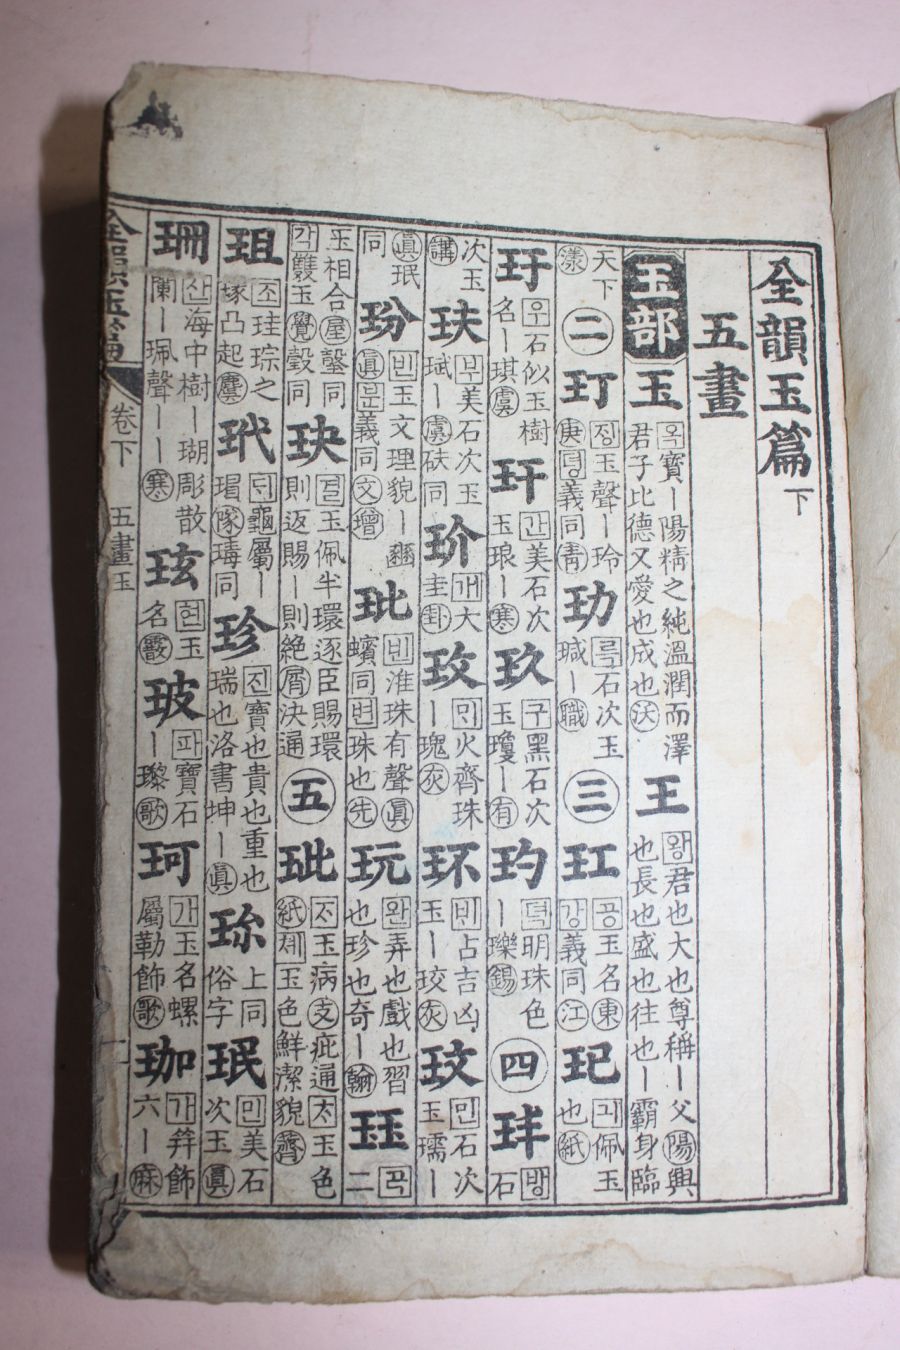 全韻玉篇 下
五畫
玉部 玉 옥寶丨陽精之純溫潤而澤君子比德又愛也成也沃 王 왕君也大也尊稱丨父陽興也長也盛也往也丨霸身臨
天下漾 二 玎 졍玉聲丨玲庚뎡義同靑 玏 륵石次玉瑊丨職 三 玒 공玉名東강義同江 玘 긔佩玉也紙
玗 우石似玉樹名丨琪虞 玕 간美石次玉琅丨寒 玖 구黑石次玉瓊丨有 玓 뎍明珠色丨瓅錫 四 玤 방石
次玉講 玞 부美石次玉珷丨虞砆同 玠 개大圭卦 玫 ᄆᆡ火齊珠丨瑰灰 环 ᄇᆡ占吉凶玉丨珓灰 玟 민石次玉瓀丨
眞珉同 玢 빈玉文理貌丨豳眞문義同文 玭 빈淮珠有聲眞蠙同변珠也先 玩 완弄也戲也習也珍也奇丨翰 玨 곡二
玉相合屋瑴同각雙玉覺瑴同 玦 결玉佩半環逐臣賜環則返賜丨則絶屑決通 五 玼 ᄌᆞ玉病支疵通ᄎᆞ玉色紙체玉色鮮潔貌薺
珇 조珪琮之瑑凸起麌 玳 ᄃᆡ龜屬丨瑁隊瑇同 珍 진寶也貴也重也瑞也洛書坤丨眞 珎 上同俗字 珉 민美石次玉眞
珊 산海中樹丨瑚彫散闌丨珮聲丨丨寒 玹 현玉名霰 玻 파寶石丨瓈歌 珂 가玉名螺屬勒飾歌 珈 가笄飾六丨麻
全韻玉篇 卷下 五畫玉 一